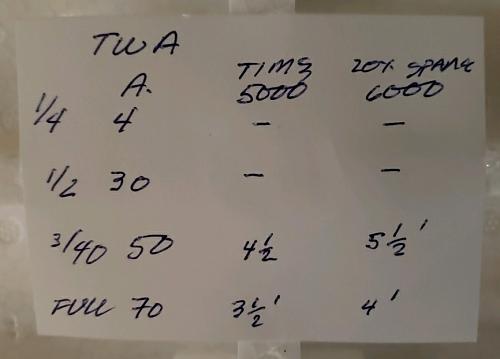 TWA
A. TIME 20% SPARE
5000 6000
1/4 4 - -
1/2 30 - -
3/40 50 4 1/2 5 1/2 '
FULL 70 3 1/2 ' 4 '